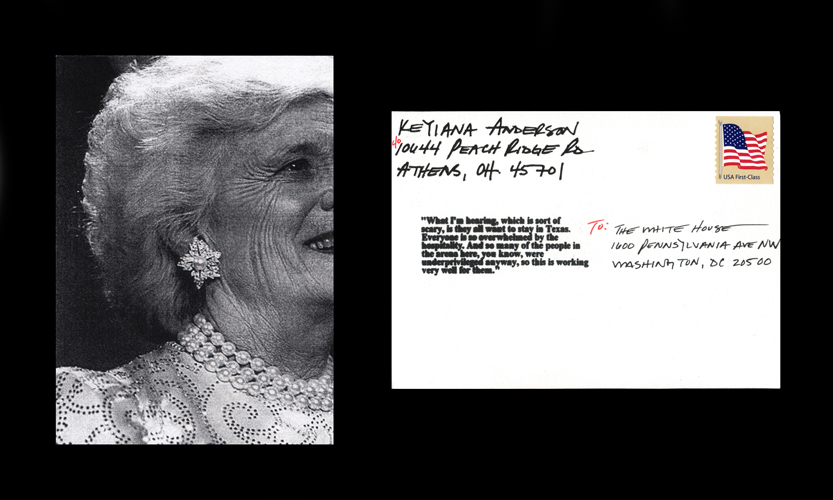 KEYIANA ANDERSON
c/o 10644 PEACH RIDGE RD
ATHENS, OH 45701
USA First-Class
"What I'm hearing, which is sort of
scary, is they all want to stay in Texas.
Everyone is so overwhelmed by the
hospitality. And so many of the people in
the arena here, you know, were
underprivileged anyway, so this is working
very well for them."
TO: THE WHITE HOUSE
1600 PENNSYLVANIA AVE NW
WASHINGTON, DC 20500